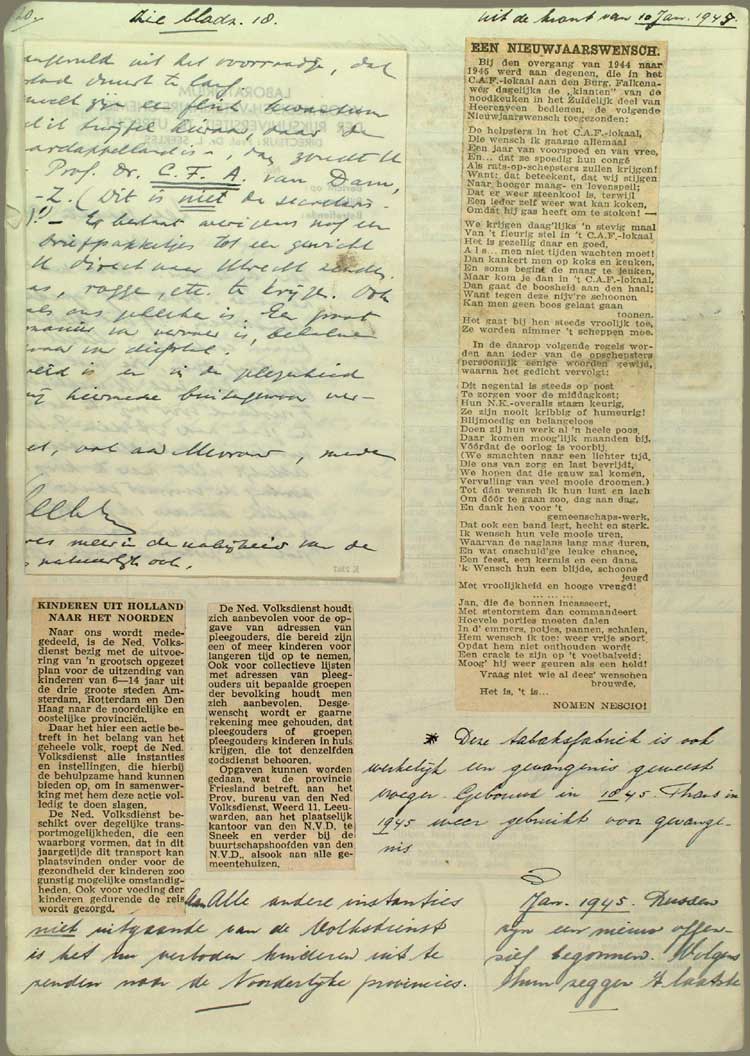 20.
Zie bladz. 18.
uit de krant van 10 Jan. 1945.
aangevuld uit het voorraadje, dat
duurt te lang
dit twijfel hieraan, daar de
aardappelland is, dan zendt U
Prof. Dr. C. F. A. van Dam,
-Z. (Dit is niet de secretaris-
)!- Er bestaat overigens nog een
briefpakketjes tot een gewicht
U direct naar Utrecht zenden.
rogge, etc. te krijgen. Ook
als ons gebleken is. Een groot
manier van vervoer is, behalve
voor in diefstal.
en in de gelegenheid
hiermede buitengewoon ver-
ook aan Mevrouw, mede
meer in de nabijheid van de
natuurlijk ook.
K 2367
LABORATORIUM
DER RIJKSUNIVERSITEIT TE UTRECHT
EEN NIEUWJAARSWENSCH.
Bij den overgang van 1944 naar
1945 werd aan degenen, die in het
C.A.F.-lokaal aan den Burg. Falkena-
weg dagelijks de „klanten” van de
noodkeuken in het Zuidelijk deel van
Heerenveen bedienen, de volgende
Nieuwjaarswensch toegezonden:
De helpsters in het C.A.F.-lokaal,
Die wensch ik gaarne allemaal
Een jaar van voorspoed en van vree,
En... dat ze spoedig hun congé
Als rats-op-schepsters zullen krijgen!
Want: dat beteekent, dat wij stijgen
Naar hooger maag- en levenspeil;
Dat er weer steenkool is, terwijl
Een ieder zelf weer wat kan koken,
Omdat hij gas heeft om te stoken! —
We krijgen daag'lijks 'n stevig maal
Van 't fleurig stel in 't C.A.F.-lokaal
Het is gezellig daar en goed,
A l s... men niet tijden wachten moet!
Dan kankert men op koks en keuken,
En soms begint de maag te jeuken,
Maar kom je dan in 't C.A.F.-lokaal,
Dan gaat de boosheid aan den haal;
Want tegen deze nijv're schoonen
Kan men geen boos gelaat gaan
toonen.
Het gaat bij hen steeds vroolijk toe,
Ze worden nimmer 't scheppen moe.
In de daarop volgende regels wor-
den aan ieder van de opschepsters
persoonlijk eenige woorden gewijd,
waarna het gedicht vervolgt:
Dit negental is steeds op post
Te zorgen voor de middagkost;
Hun N.K.-overalls staan keurig,
Ze zijn nooit kribbig of humeurig!
Blijmoedig en belangeloos
Doen zij hun werk al 'n heele poos.
Daar komen moog'lijk maanden bij,
Vóórdat de oorlog is voorbij.
(We smachten naar een lichter tijd,
Die ons van zorg en last bevrijdt,
We hopen dat die gauw zal komen,
Vervulling van veel mooie droomen.)
Tot dán wensch ik hun lust en lach
Om dóór te gaan zoo, dag aan dag,
En dank hen voor 't
gemeenschaps-werk,
Dat ook een band legt, hecht en sterk.
Ik wensch hun vele mooie uren,
Waarvan de naglans lang mag duren,
En wat onschuld'ge leuke chance,
Een feest, een kermis en een dans.
'k Wensch hun een blijde, schoone
jeugd
Met vroolijkheid en hooge vreugd!
... ... ...
Jan, die de bonnen incasseert,
Met stentorstem dan commandeert
Hoevele porties moeten dalen
In d' emmers, potjes, pannen, schalen,
Hem wensch ik toe: weer vrije sport,
Opdat hem niet onthouden wordt
Een crack te zijn op 't voetbalveld;
Moog' hij weer geuren als een held!
Vraag niet wie al deez' wenschen
brouwde,
Het is, 't is...
NOMEN NESCIO!
KINDEREN UIT HOLLAND
NAAR HET NOORDEN
Naar ons wordt mede-
gedeeld, is de Ned. Volks-
dienst bezig met de uitvoe-
ring van 'n grootsch opgezet
plan voor de uitzending van
kinderen van 6—14 jaar uit
de drie groote steden Am-
sterdam, Rotterdam en Den
Haag naar de noordelijke en
oostelijke provinciën.
Daar het hier een actie be-
treft in het belang van het
geheele volk, roept de Ned.
Volksdienst alle instanties
en instellingen, die hierbij
de behulpzame hand kunnen
bieden op, om in samenwer-
king met hem deze actie vol-
ledig te doen slagen.
De Ned. Volksdienst be-
schikt over degelijke trans-
portmogelijkheden, die een
waarborg vormen, dat in dit
jaargetijde dit transport kan
plaatsvinden onder voor de
gezondheid der kinderen zoo
gunstig mogelijke omstandig-
heden. Ook voor voeding der
kinderen gedurende de reis
wordt gezorgd.
De Ned. Volksdienst houdt
zich aanbevolen voor de op-
gave van adressen van
pleegouders, die bereid zijn
een of meer kinderen voor
langeren tijd op te nemen.
Ook voor collectieve lijsten
met adressen van pleeg-
ouders uit bepaalde groepen
der bevolking houdt men
zich aanbevolen. Desge-
wenscht wordt er gaarne
rekening mee gehouden, dat
pleegouders of groepen
pleegouders kinderen in huis
krijgen, die tot denzelfden
godsdienst behooren.
Opgaven kunnen worden
gedaan, wat de provincie
Friesland betreft, aan het
Prov. bureau van den Ned.
Volksdienst, Weerd 11, Leeu-
warden, aan het plaatselijk
kantoor van den N.V.D. te
Sneek en verder bij de
buurtschapshoofden van den
N.V.D., alsook aan alle ge-
meentehuizen.
* Deze tabaksfabriek is ook
werkelijk een gevangenis geweest
vroeger. Gebouwd in 1845. Thans in
1945 weer gebruikt voor gevange-
nis
Aan Alle andere instanties
niet uitgaande van de Volksdienst
is het nu verboden kinderen uit te
zenden naar de Noordelijke provincies.
Jan. 1945. Russen
zijn een nieuw offen-
sief begonnen. Volgens
hun zeggen 't laatste